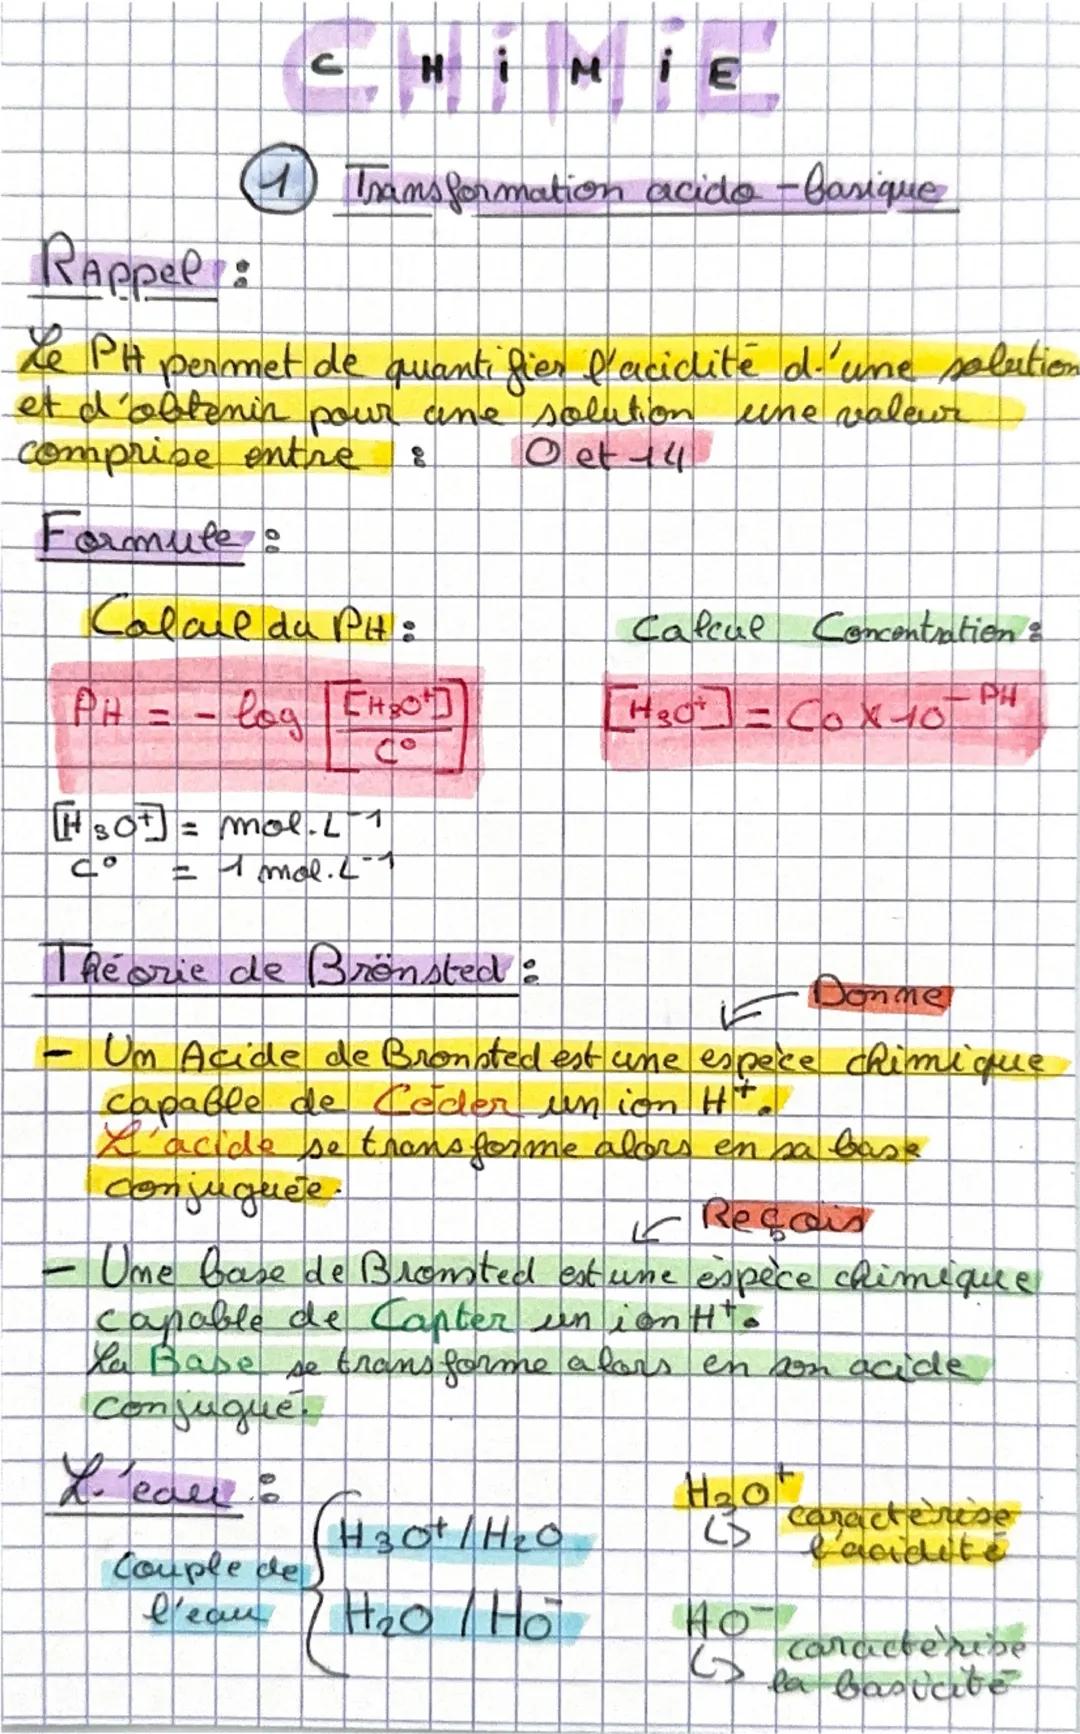 CHiMiE
1 Transformation acido-basique
RAppel :
Le PH permet de quantifier l'acidité d'une solution
et d'obtenir pour une solution une valeur
comprise entre : 0 et 14
Formule :
Calcul du PH : Calcul Concentration :
PH = - log [[H3O+] / C°] [H3O+] = Co x 10^-PH
[H3O+] = mol.L-1
C° = 1 mol.L-1
Théorie de Brönsted :
Donne
- Un Acide de Bronsted est une espèce chimique
capable de Céder un ion H+.
L'acide se transforme alors en sa base
conjuguée.
Reçois
- Une base de Bronsted est une èspèce chimique
capable de Capter un ion H+.
La Base se transforme alors en son acide
conjugué.
L'eau :
Couple de
l'eau
H3O+ / H2O
H2O / HO-
H3O+
caractèrise
l'acidité
HO-
caractèrise
la basicité